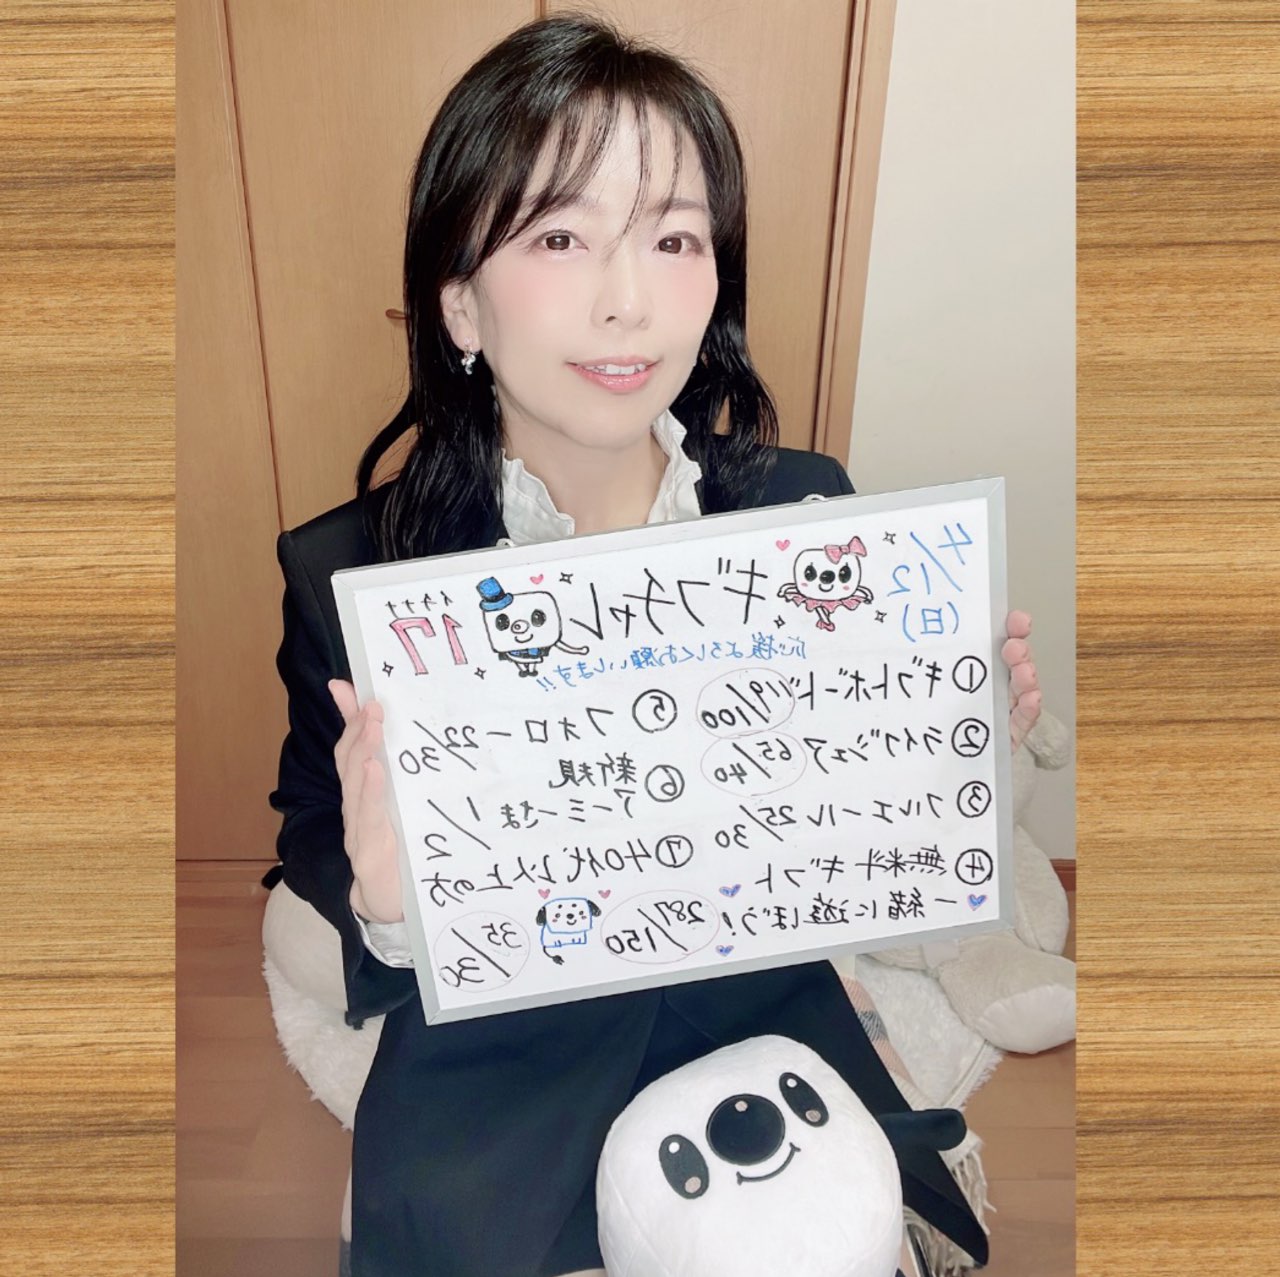 4/12
(日)
ギフチャレ
イチナナ
17
応援よろしくお願いします!!
①ギフトボード 119/100
②ライブシェア 65/40
③フルエール 25/30
④無料ギフト
287/150
一緒に遊ぼう!
⑤フォロー 22/30
⑥新規
アーミーさま 1/2
⑦40代以上の方
35/30